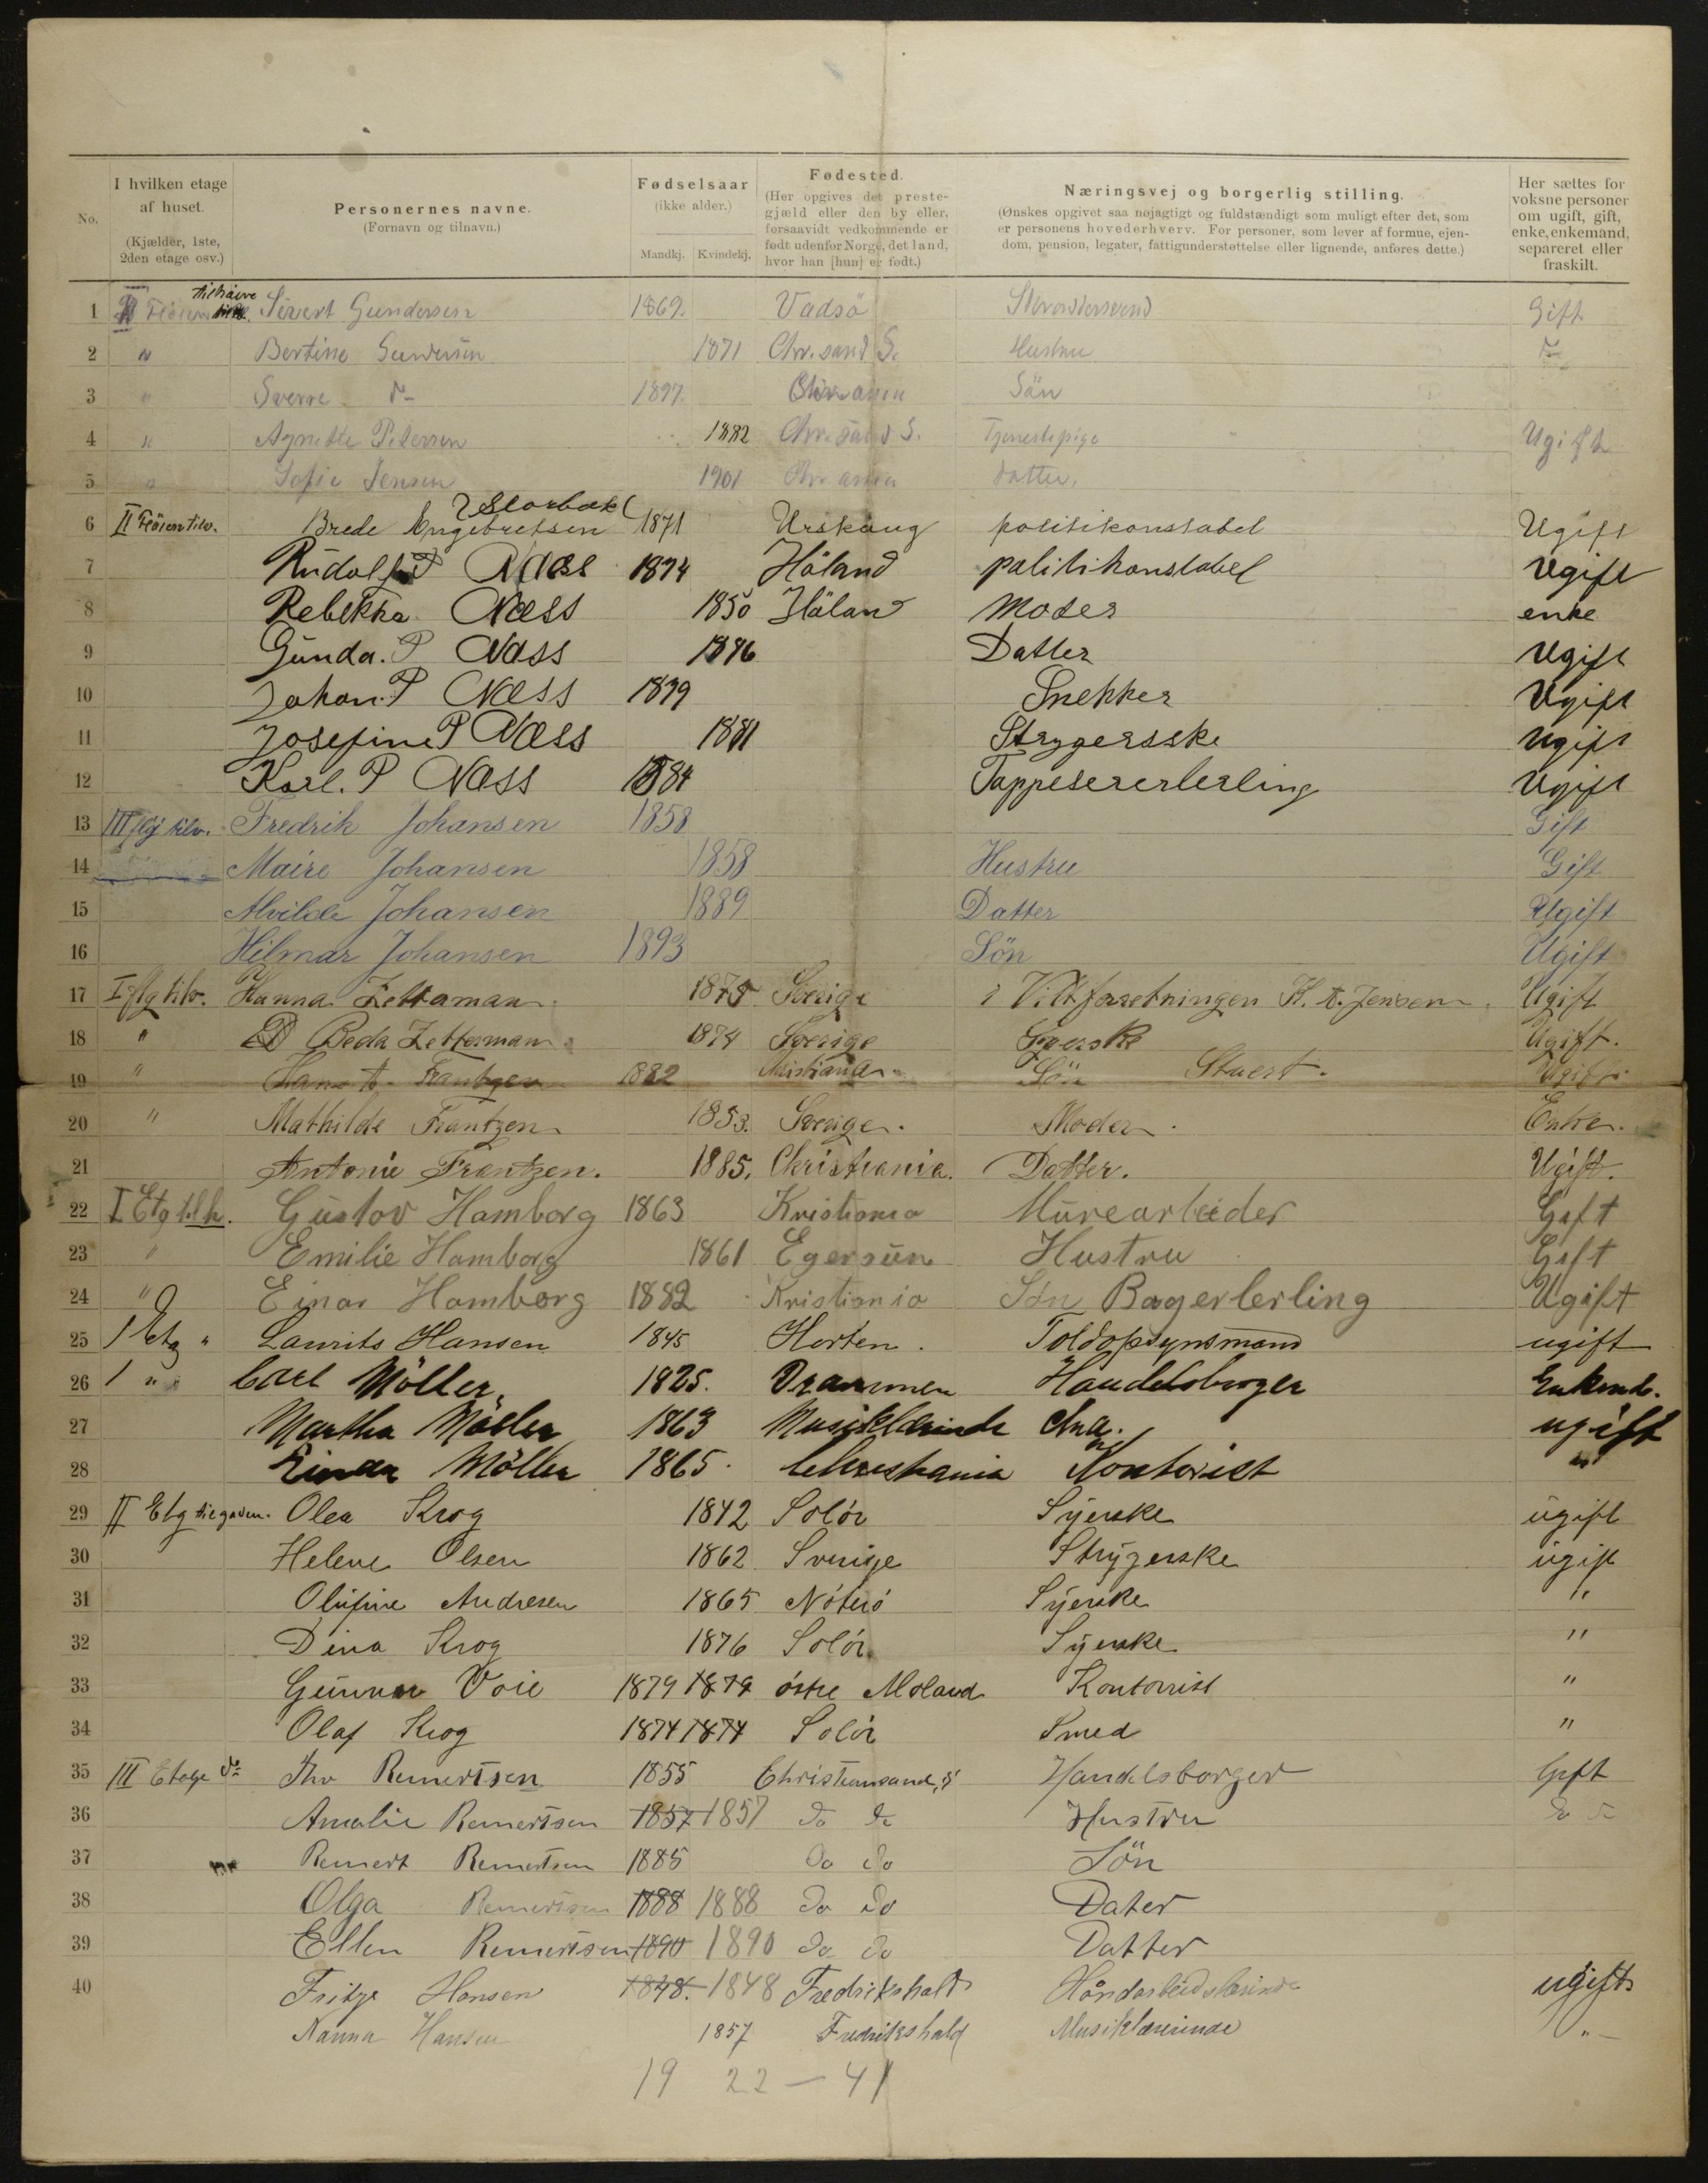 No.
I hvilken etage af huset. (Kjælder, 1ste, 2den etage osv.)
Personernes navne. (Fornavn og tilnavn.)
Fødselsaar (ikke alder.) Mandkj. Kvindekj.
Fødested. (Her opgives det prestegjæld eller den by eller, forsaavidt vedkommende er født udenfor Norge, det land, hvor han [hun] er født.)
Næringsvej og borgerlig stilling. (Ønskes opgivet saa nøjagtigt og fuldstændigt som muligt efter det, som er personens hovederhverv. For personer, som lever af formue, ejendom, pension, legater, fattigunderstøttelse eller lignende, anføres dette.)
Her sættes for voksne personer om ugift, gift, enke, enkemand, separeret eller fraskilt.
1 Sivert Gundersen 1869. Vadsö Gift
2 " Bertine Gundersen 1871 Chr.sand S. Hustru
3 " Sverre 1897. Chr.ania Sön
4 " Agnette Petersen 1882 Chr.sand S. Tjenestepige Ugift
5 " Sofie Jensen 1901 Chr.ania datter,
6 II Fløien tilv. Brede Engebretsen Slorbak 1871 Urskoug politikonstabel Ugift
7 Rudolf P Næss 1874 Høland politikonstabel Ugift
8 Rebekka Næss 1850 Høland Moder enke
9 Gunda. P Næss 1876 Datter Ugift
10 Johan. P Næss 1879 Snekker Ugift
11 Josefine P Næss 1881 Strygersske Ugift
12 Karl. P Næss 1884 Tappesererlerling Ugift
13 III flj tilv. Fredrik Johansen 1858 Gift
14 Maire Johansen 1858 Hustru Gift
15 Alvilda Johansen 1889 Datter Ugift
16 Hilmar Johansen 1893 Sön Ugift
17 I flg tilv. Hanna Zettaman 1875 Sverige i Viktforretningen H. A. Jensen. Ugift
18 " Beda Zetterman 1874 Sverige Ugift.
19 " Hans A. Frantzen 1882 Kristiania Sön Stuert. Ugift.
20 " Mathilde Frantzen 1853. Sverige. Moder. Enke.
21 Antonie Frantzen. 1885. Christiania. Datter. Ugift.
22 I Etg t.h. Gustav Hamborg 1863 Kristiania Murearbeider Gift
23 " Emilie Hamborg 1861 Egersun Hustru Gift
24 " Einar Hamborg 1882 Kristiania Sön Bagerlerling Ugift
25 1 Etg " Laurits Hansen 1845 Horten. Toldopsynsmand ugift
26 1 " " Carl Möller, 1825. Drammen Handelsborger Enkemd.
27 Martha Möller 1863 Musiklærinde Chra. ugift
28 Einar Möller 1865. Christiania Kontorist "
29 II Etg til gaden. Olea Krog 1842 Solör Syerske ugift
30 Helene Olsen 1862 Sverige Strygerske ugift
31 Olufine Andresen 1865 Nöterö Syerske "
32 Dina Krog 1876 Solör Syerske "
33 Gunnar Voie 1879 1879 östre Moland Kontorist "
34 Olaf Krog 1874 1874 Solör Smed "
35 III Etage do Thv Remertsen 1855 Christiansand, S Handelsborger Gift
36 Amalie Remertsen 1857 1857 do do Hustru do
37 Remert Remertsen 1885 do do Sön
38 Olga Remertsen 1888 1888 do do Dater
39 Ellen Remertsen 1890 1890 do do Datter
40 Fritze Hansen 1848. 1848 Fredrikshald Håndarbeidslærinde ugift
Nanna Hansen 1857 Fredrikshald Musiklærerinde "
19 22 — 41